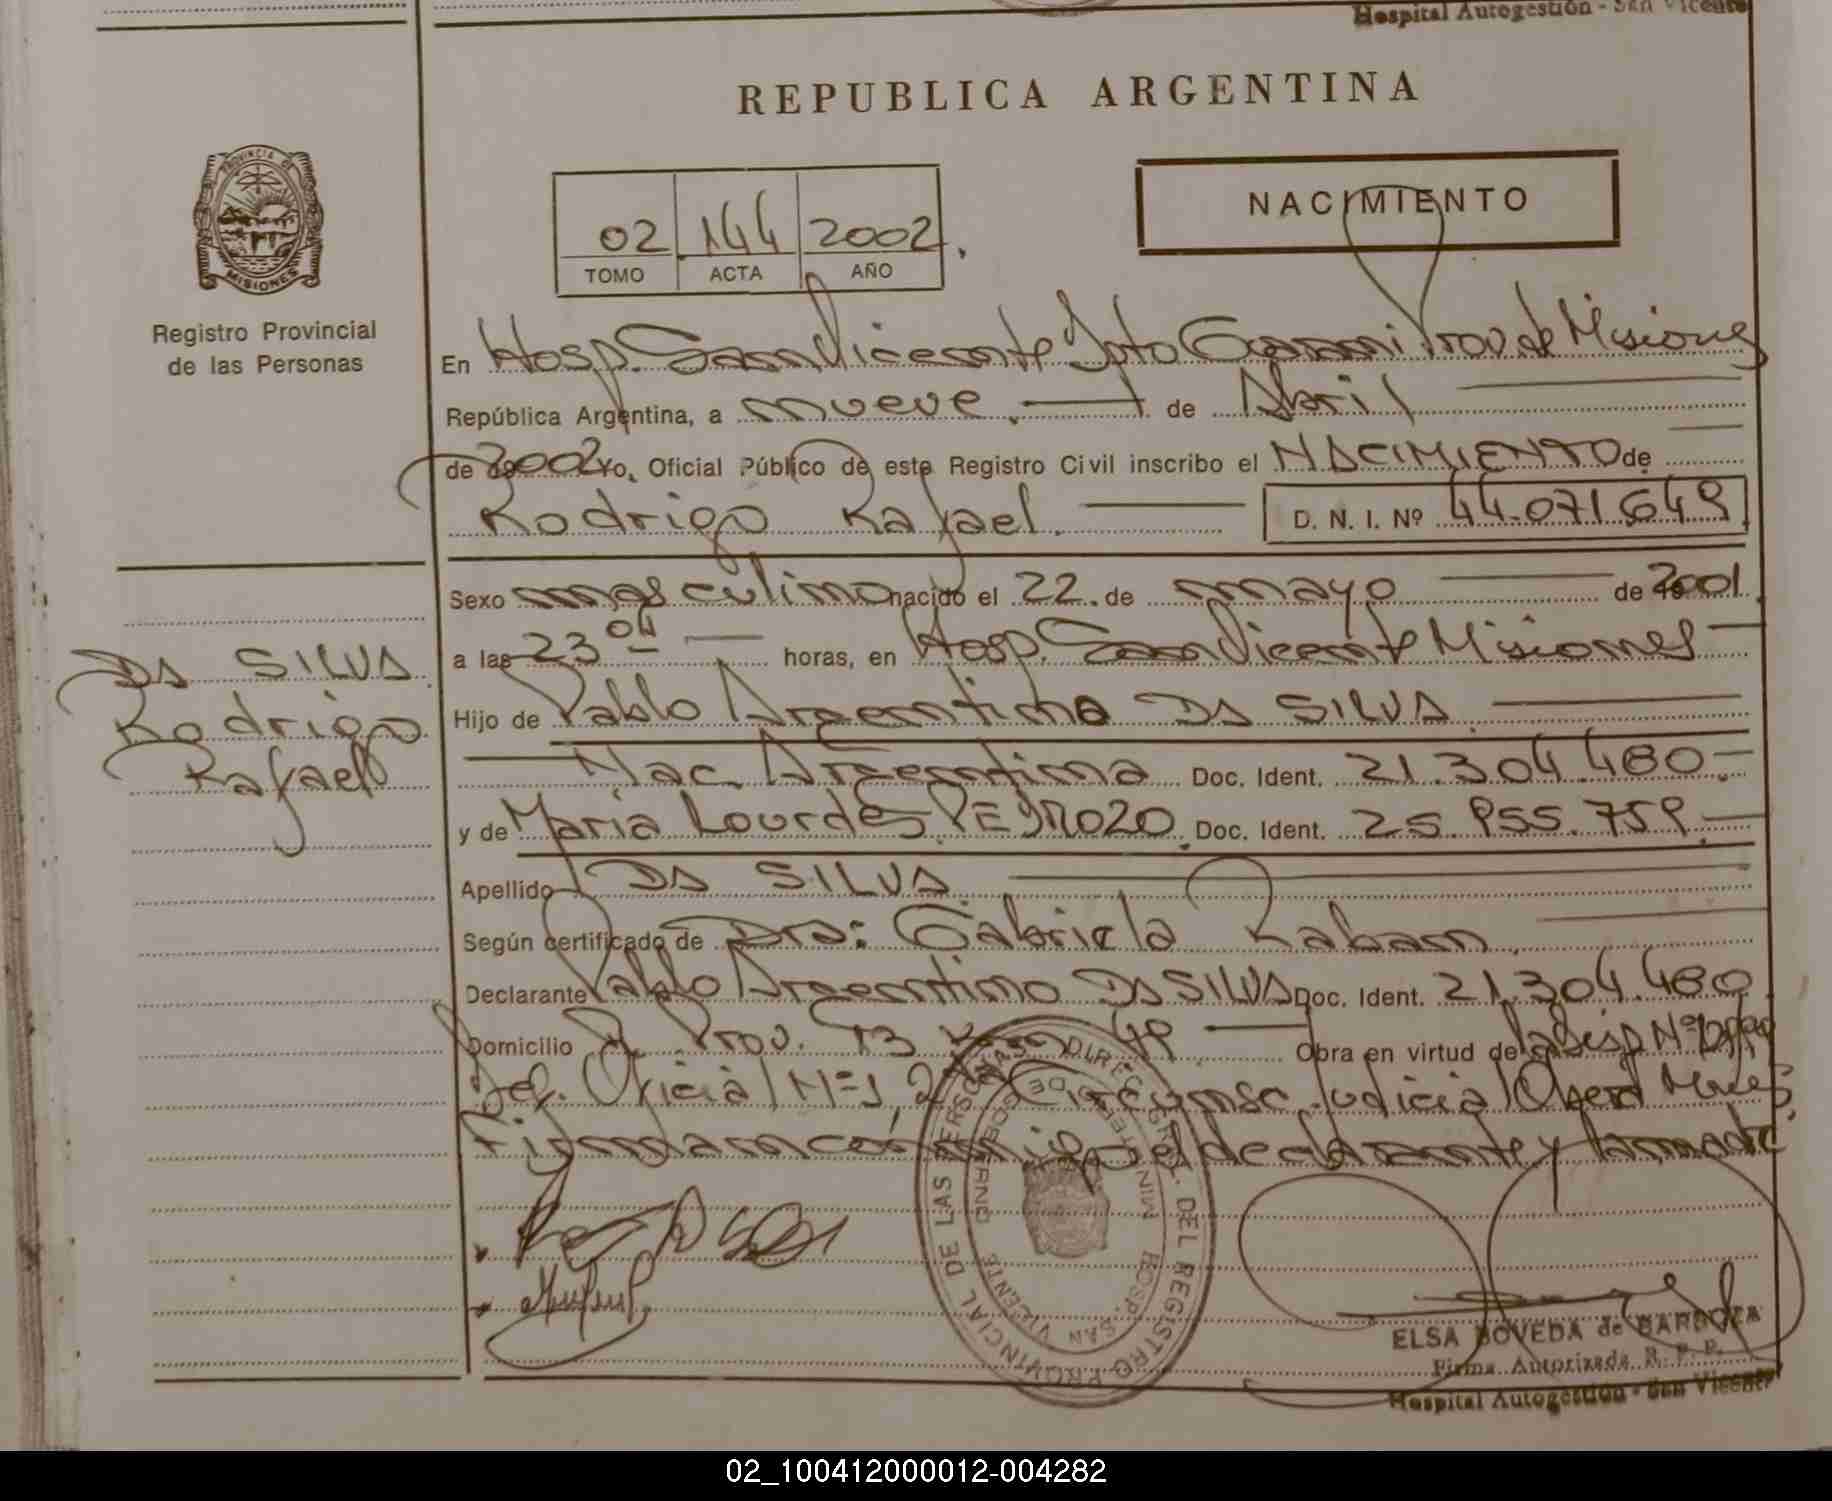 Hospital Autogestión - San Vicente
REPUBLICA ARGENTINA
NACIMIENTO
02 144 2002
TOMO ACTA AÑO
PROVINCIA DE
MISIONES
Registro Provincial
de las Personas
En Hosp. San Vicente Dpto Guarani Prov de Misiones
República Argentina, a nueve de Abril
de 2002 Yo, Oficial Público de este Registro Civil inscribo el NACIMIENTO de
Rodrigo Rafael. D. N. I. Nº 44.071.649
Sexo masculino nacido el 22 de mayo de 2001
a las 23 04 horas, en Hosp. San Vicente Misiones
Hijo de Pablo Argentino DA SILVA
Nac. Argentina Doc. Ident. 21.304.480
y de Maria Lourdes PEDROZO Doc. Ident. 25.955.759
Apellido DA SILVA
Según certificado de Dra: Gabriela Raban
Declarante Pablo Argentino DA SILVA Doc. Ident. 21.304.480
Domicilio R. Prov. 13 Km Obra en virtud de la Disp Nº
Def. Oficial Nº 1, 2 Circunsc. Judicial Oberá Mnes
Firman conmigo el declarante y la madre
DA SILVA
Rodrigo
Rafael
DIREC. GRAL. DEL REGISTRO PROVINCIAL DE LAS PERSONAS
MINISTERIO DE GOBIERNO
HOSP. SAN VICENTE
ELSA BOVEDA de BARBOZA
Firma Autorizada R. P. P.
Hospital Autogestión - San Vicente
02_100412000012-004282